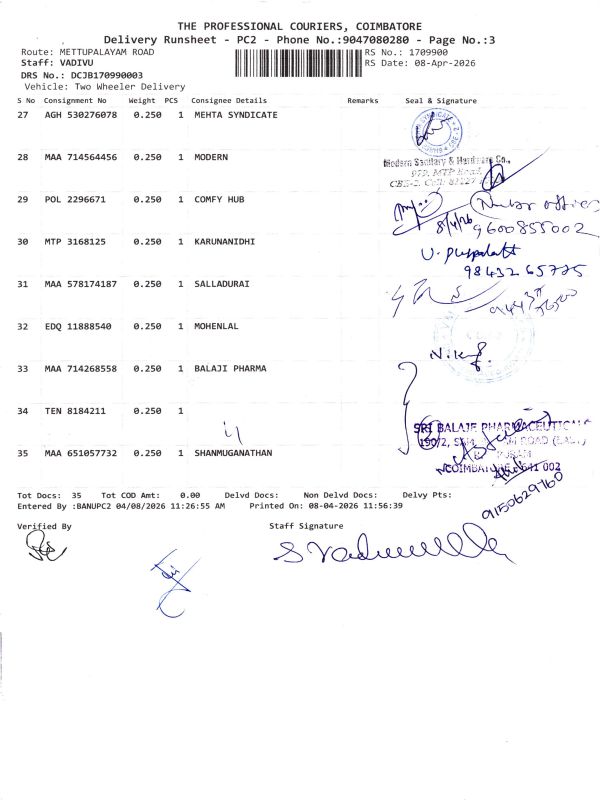 THE PROFESSIONAL COURIERS, COIMBATORE
Delivery Runsheet - PC2 - Phone No.:9047080280 - Page No.:3
Route: METTUPALAYAM ROAD
RS No.: 1709900
Staff: VADIVU
RS Date: 08-Apr-2026
DRS No.: DCJB170990003
Vehicle: Two Wheeler Delivery
S No Consignment No Weight PCS Consignee Details Remarks Seal & Signature
27 AGH 530276078 0.250 1 MEHTA SYNDICATE
28 MAA 714564456 0.250 1 MODERN
Modern Sanitary & Hardware Co.,
979, MTP Road,
29 POL 2296671 0.250 1 COMFY HUB
8/4/26 9600855002
30 MTP 3168125 0.250 1 KARUNANIDHI
98432 65775
31 MAA 578174187 0.250 1 SALLADURAI
32 EDQ 11888540 0.250 1 MOHENLAL
33 MAA 714268558 0.250 1 BALAJI PHARMA
34 TEN 8184211 0.250 1
SRI BALAJI PHARMACEUTICALS
190/2,
COIMBATORE 641 002
35 MAA 651057732 0.250 1 SHANMUGANATHAN
9150629760
Tot Docs: 35 Tot COD Amt: 0.00 Delvd Docs: Non Delvd Docs: Delvy Pts:
Entered By :BANUPC2 04/08/2026 11:26:55 AM Printed On: 08-04-2026 11:56:39
Verified By Staff Signature
S Vadivu